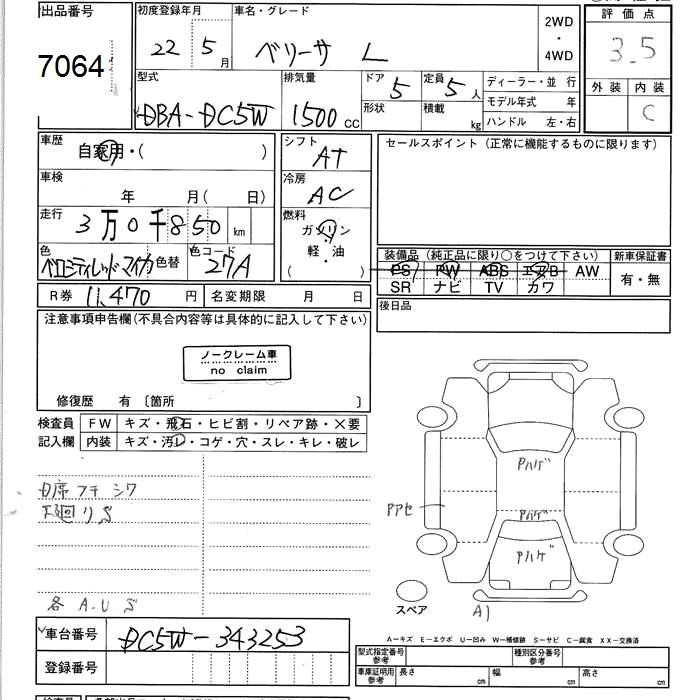 出品番号
7064
初度登録年月
22 5月
車名・グレード
ベリーサ L
2WD
・
4WD
評価点
3.5
外装 内装
C
型式
DBA-DC5W
排気量
1500cc
ドア 5
形状
定員 5人
積載 kg
ディーラー・並 行
モデル年式 年
ハンドル 左・右
車歴
自家用・( )
シフト
AT
セールスポイント (正常に機能するものに限ります)
車検
年 月( 日)
冷房
AC
走行
3万0千850km
燃料
ガソリン
軽・油
( )
色
ベロシティレッドマイカ
色替
色コード
27A
装備品 (純正品に限り○をつけて下さい)
新車保証書
PS PW ABS エアB AW
SR ナビ TV カワ
有・無
R券 11,470円
名変期限 月 日
後日品
注意事項申告欄(不具合内容等は具体的に記入して下さい)
ノークレーム車
no claim
修復歴 有 〔箇所 〕
検査員
記入欄
FW キズ・飛石・ヒビ割・リペア跡・×要
内装 キズ・汚れ・コゲ・穴・スレ・キレ・破レ
D席フチ シワ
下廻りS
各 A.U S
Pハゲ
Pハゲ
Pハゲ
Pアセ
スペア
A1
車台番号
DC5W-343253
登録番号
A-キズ E-エクボ U-凹み W-補修跡 S-サビ C-腐食 XX-交換済
型式指定番号
参考
種別区分番号
参考
車庫証明用
参考
長さ cm
幅 cm
高さ cm